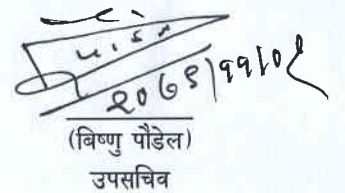 २०७९।११।०१
(बिष्णु पौडेल)
उपसचिव